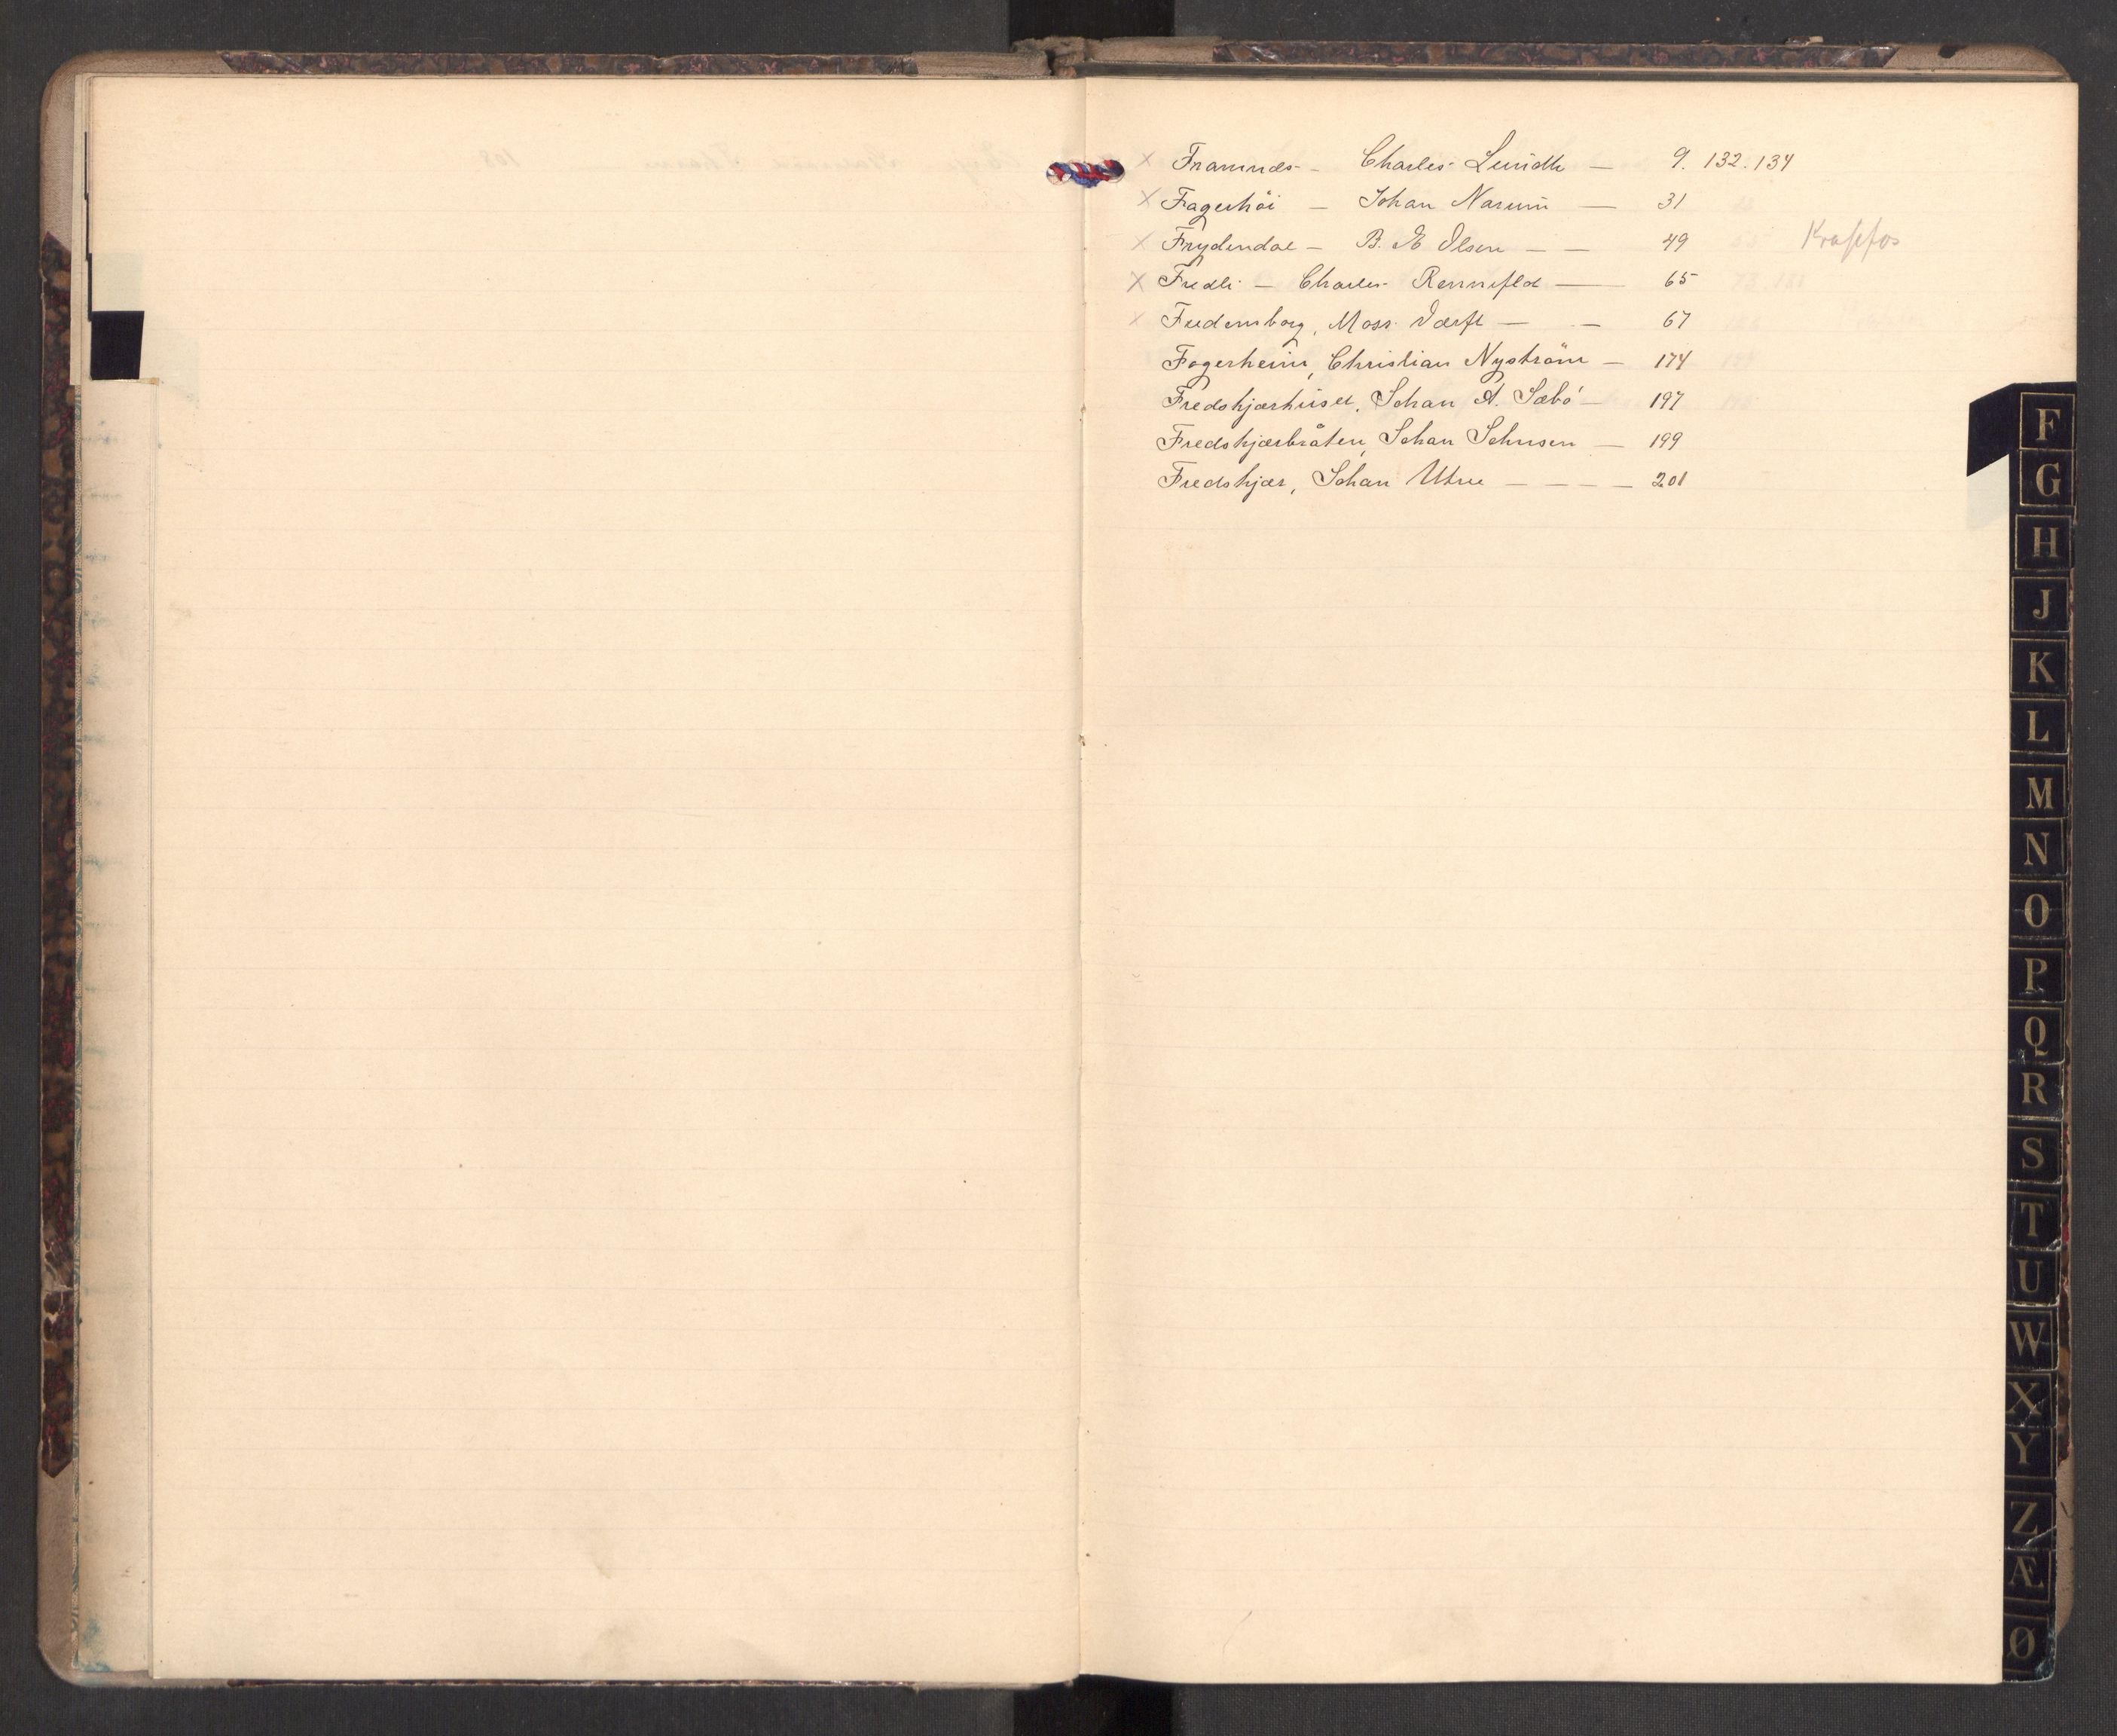 × Framnæs - Charles Lundh — 9. 132. 134
× Fagerhöi — Johan Narum — 31
× Frydendal — B. M Olsen — — 49 Krapfos
× Fredli — Charles Rennifld — 65
× Fredensborg, Moss Værft — — 67
Fagerheim, Christian Nyström — 174
Fredskjærhuset, Johan A. Sæbö — 197
Fredskjærbråten, Johan Johnsen — 199
Fredskjær, Johan Utne — — — — 201
F
G
H
J
K
L
M
N
O
P
Q
R
S
T
U
W
X
Y
Z
Æ
Ø